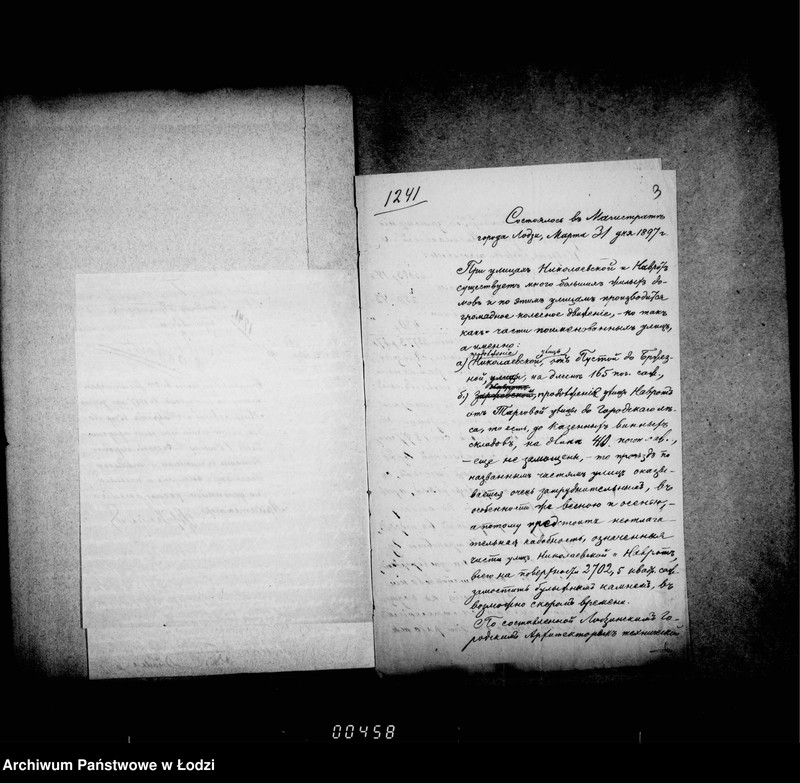 1241
3
Состоялось въ Магистратѣ
города Лодзи, Марта 31 дня 1897 г.
При улицахъ Николаевской и Навротъ
существуетъ много большихъ жилыхъ до-
мовъ и по этимъ улицамъ производится
громадное колесное движеніе, - но такъ
какъ части поименованныхъ улицъ,
а именно:
продолженіе улицы
а) Николаевской, отъ Пустой до Брзез-
ной, улицы, на длинѣ 165 пог. саж.,
б) продолженія улицы Навротъ
отъ Тарговой улицы до Городскаго лѣ-
са, то есть, до Казенныхъ винныхъ
складовъ, на длинѣ 410 погон. саж.,
- еще не замощены, - то проѣздъ по
названнымъ частямъ улицъ оказы-
вается очень затруднительнымъ, въ
особенности же весною и осенью, -
а потому предстоитъ неотлага-
тельная надобность, означенныя
части улицъ Николаевской и Навротъ,
всего на поверхности 2702,5 квад. саж.
замостить булыжнымъ камнемъ, въ
возможно скоромъ времени.
По составленной Лодзинскимъ Го-
родскимъ Архитекторомъ технической
00458
Archiwum Państwowe w Łodzi